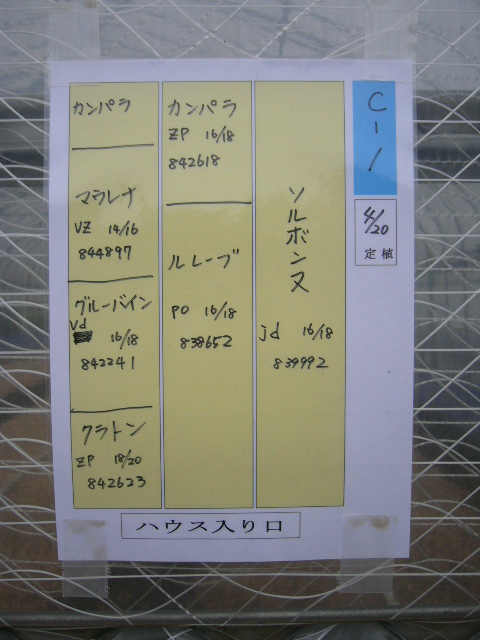 C-1
4/20
定植
カンパラ
マウレナ
VZ 14/16
844897
グルーバイン
Vd
16/18
842241
クラトン
ZP 18/20
842623
カンパラ
ZP 16/18
842618
ルレーブ
PO 16/18
838652
ソルボンヌ
jd 16/18
839992
ハウス入り口